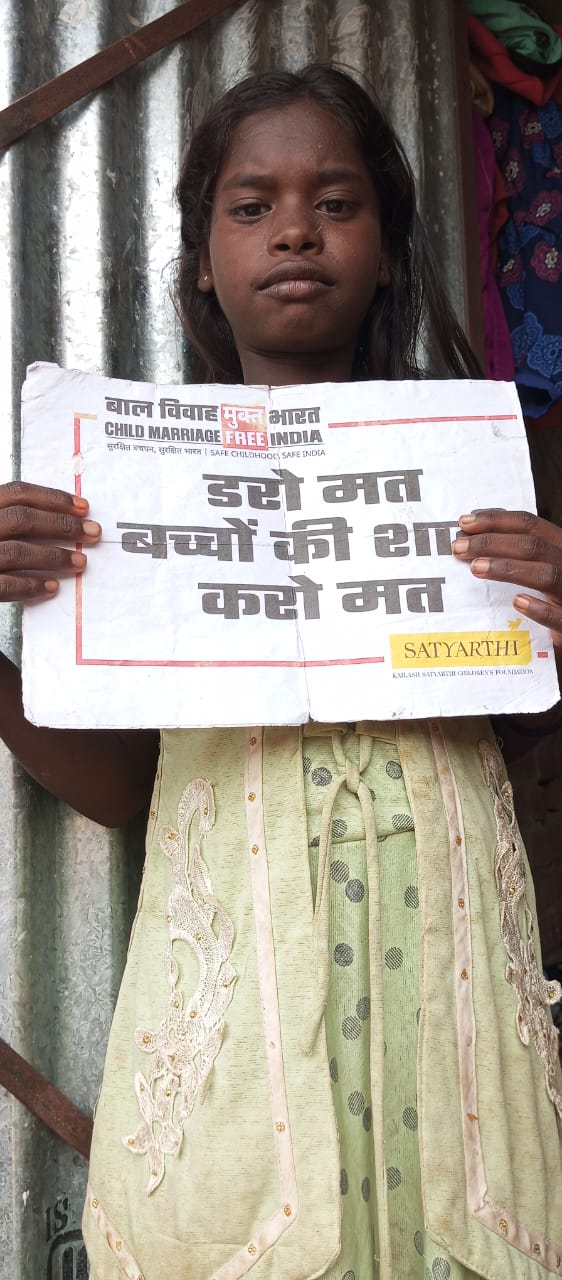 बाल विवाह मुक्त भारत
CHILD MARRIAGE FREE INDIA
सुरक्षित बचपन, सुरक्षित भारत | SAFE CHILDHOOD, SAFE INDIA
डरो मत
बच्चों की
करो मत
SATYARTHI
KAILASH SATYARTHI CHILDREN'S FOUNDATION